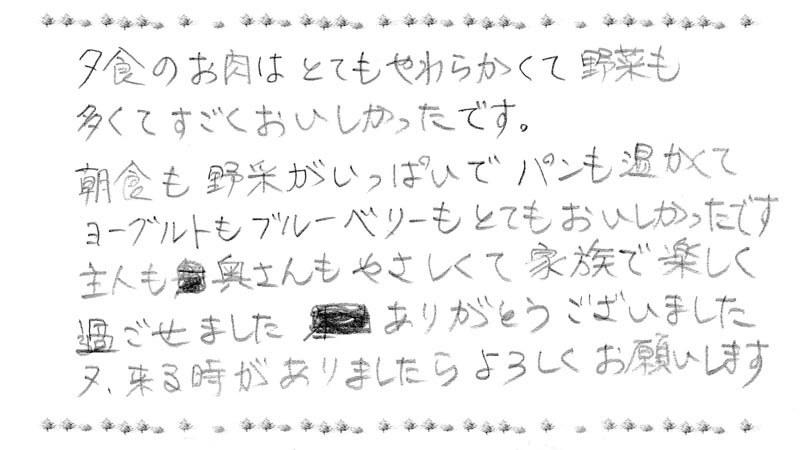 夕食のお肉はとてもやわらかくて野菜も
多くてすごくおいしかったです。
朝食も野菜がいっぱいでパンも温かくて
ヨーグルトもブルーベリーもとてもおいしかったです
主人も奥さんもやさしくて家族で楽しく
過ごせました ありがとうございました
又、来る時がありましたらよろしくお願いします